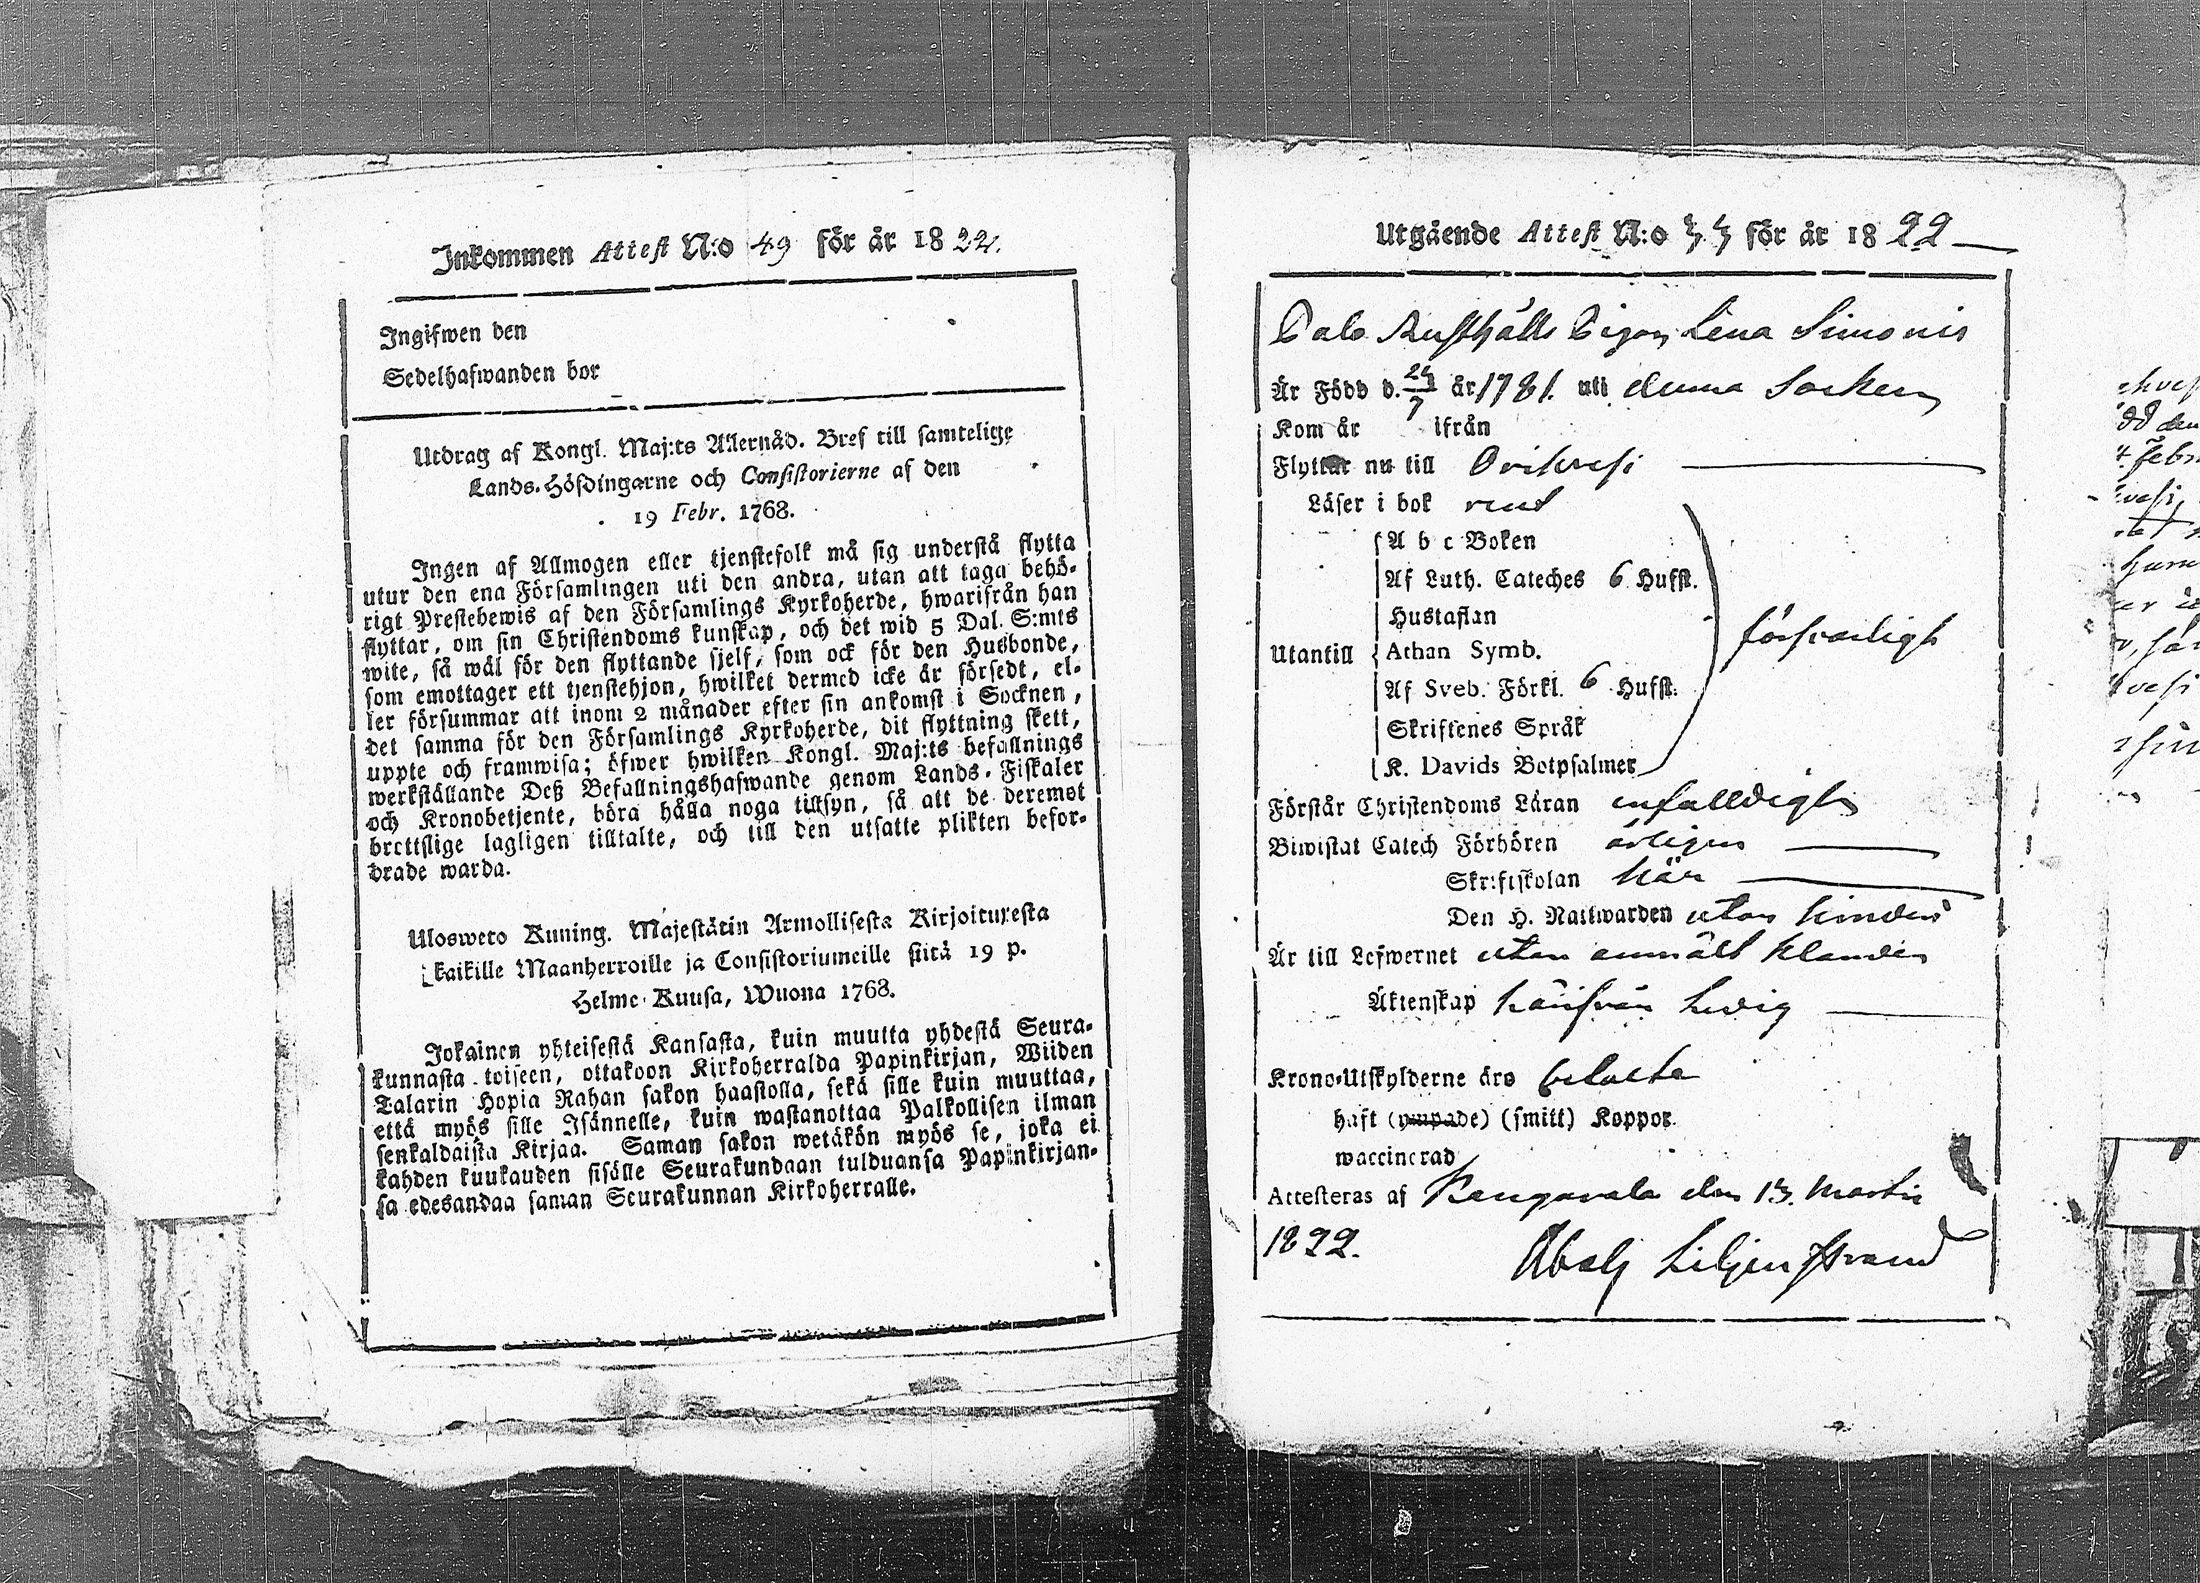 Inkommen Attest N:o 49 för år 1822.
Ingifwen den
Sedelhafwanden bor
Utdrag af Kongl. Maj:ts Allernåd. Bref till samtelige
Lands-Höfdingarne och Consistorierne af den
19 Febr. 1768.
Ingen af Allmogen eller tjenstefolk må sig understå flytta
utur den ena Församlingen uti den andra, utan att taga behö-
rigt Prestebewis af den Församlings Kyrkoherde, hwarifrån han
flyttar, om sin Christendoms kunskap, och det wid 5 Dal. S:mts
wite, så wäl för den flyttande sjelf, som ock för den Husbonde,
som emottager ett tjenstehjon, hwilket dermed icke är försedt, el-
ler försummar att inom 2 månader efter sin ankomst i Socknen,
det samma för den Församlings Kyrkoherde, dit flyttning skett,
uppte och framwisa; öfwer hwilken Kongl. Maj:ts befallnings
werkställande Deß Befallningshafwande genom Lands-Fiskaler
och Kronobetjente, böra hålla noga tillsyn, så att de deremot
brottslige lagligen tilltalte, och till den utsatte plikten befor-
drade warda.
Ulosweto Kuning. Majestätin Armollisesta Kirjoituxesta
kaikille Maanherroille ja Consistoriumeille siitä 19 p.
Helme-Kuusa, Wuona 1768.
Jokainen yhteisestä Kansasta, kuin muutta yhdestä Seura-
kunnasta toiseen, ottakoon Kirkoherralda Papinkirjan, Wiiden
Talarin Hopia Rahan sakon haastolla, sekä sille kuin muuttaa,
että myös sille Isännelle, kuin wastanottaa Palkollisen ilman
senkaldaista Kirjaa. Saman sakon wetäkön myös se, joka ei
kahden kuukauden sisälle Seurakundaan tulduansa Papinkirjan-
sa edesandaa saman Seurakunnan Kirkoherralle.
Utgående Attest N:o för år 1822
Rusthålls Pigan Lena Simonis
Är Född d. 24/7 år 1781. uti denna Socken
Kom år ifrån
Flyttar nu till Orihvesi
Läser i bok rent
Utantill
A b c Boken
Af Luth. Cateches 6 Hufst.
Hustaflan
Athan Symb.
Af Sveb. Förkl. 6 Hufst.
Skriftenes Språk
K. Davids Botpsalmer
försvarligt
Förstår Christendoms Läran enfalldigt
Biwistat Catech Förhören årligen
Skriftskolan här
Den H. Nattwarden utan hinder
Är till Lefwernet utan anmält klander
Äktenskap härifrån ledig
Krono-Utskylderne äro betalte
haft (ympade) (smitt) Koppor.
waccinerad
Attesteras af Kangasala den 13. Martii
1822.
Adolf Liljenstrand